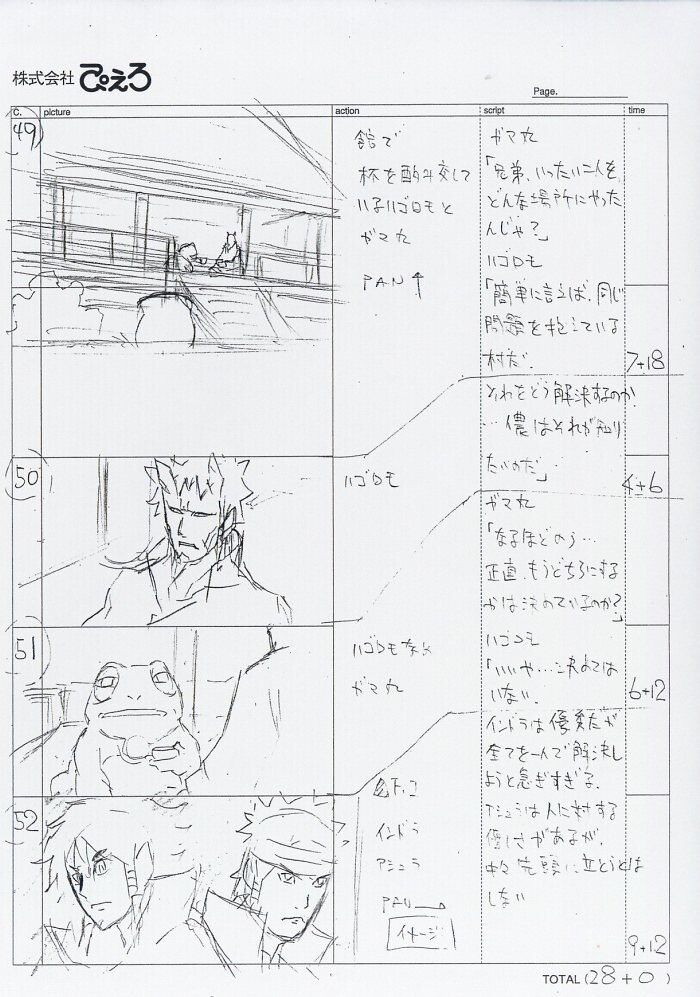 株式会社 ぴえろ
Page.
C. picture action script time
49
館で
杯を酌み交して
いるハゴロモと
ガマ丸
PAN↑
ガマ丸
「兄弟、いったい二人を
どんな場所にやった
んじゃ?」
ハゴロモ
「簡単に言えば、同じ
問題を抱えている
村だ.
7+18
それをどう解決するのか
…儂はそれが知り
たいのだ」
4+6
50
ハゴロモ
ガマ丸
「なるほどのう…
正直、もうどちらにする
かは決めているのか?」
51
ハゴロモなめ
ガマ丸
ハゴロモ
「いいや…決めては
いない.
6+12
インドラは優秀だが
全てを一人で解決し
ようと急ぎすぎる.
52
インドラ
アシュラ
PAN→
イメージ
アシュラは人に対する
優しさがあるが、
中々先頭に立とうとは
しない
9+12
TOTAL (28+0)